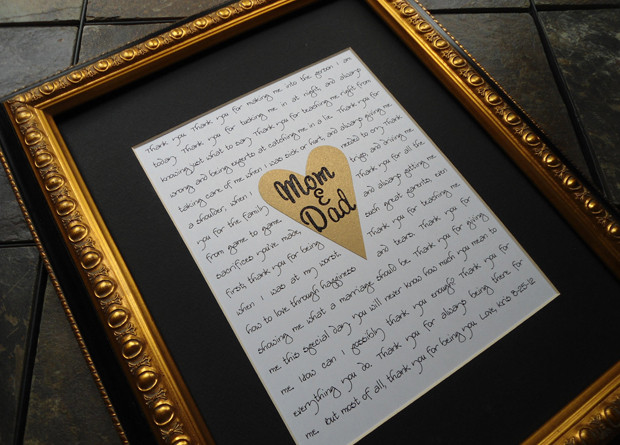 Thank you. Thank you for making me into the person I am
today. Thank you for tucking me in at night, and always
knowing just what to say. Thank you for teaching me right from
wrong and being experts at catching me in a lie. Thank you for
taking care of me when I was sick or hurt, and always giving me
a shoulder, when I needed to cry. Thank
you for the family trips, and driving me
from game to game. Thank you for all the
sacrifices you've made, and always putting me
first; thank you for being such great parents, even
when I was at my worst. Thank you for teaching me
how to love through happiness and tears. Thank you for
showing me what a marriage should be. Thank you for giving
me this special day; you will never know how much you mean to
me. How can I possibly thank you enough? Thank you for
everything you do. Thank you for always being there for
me, but most of all, thank you for being you. Love, Kris 8-25-12
Mom
&
Dad